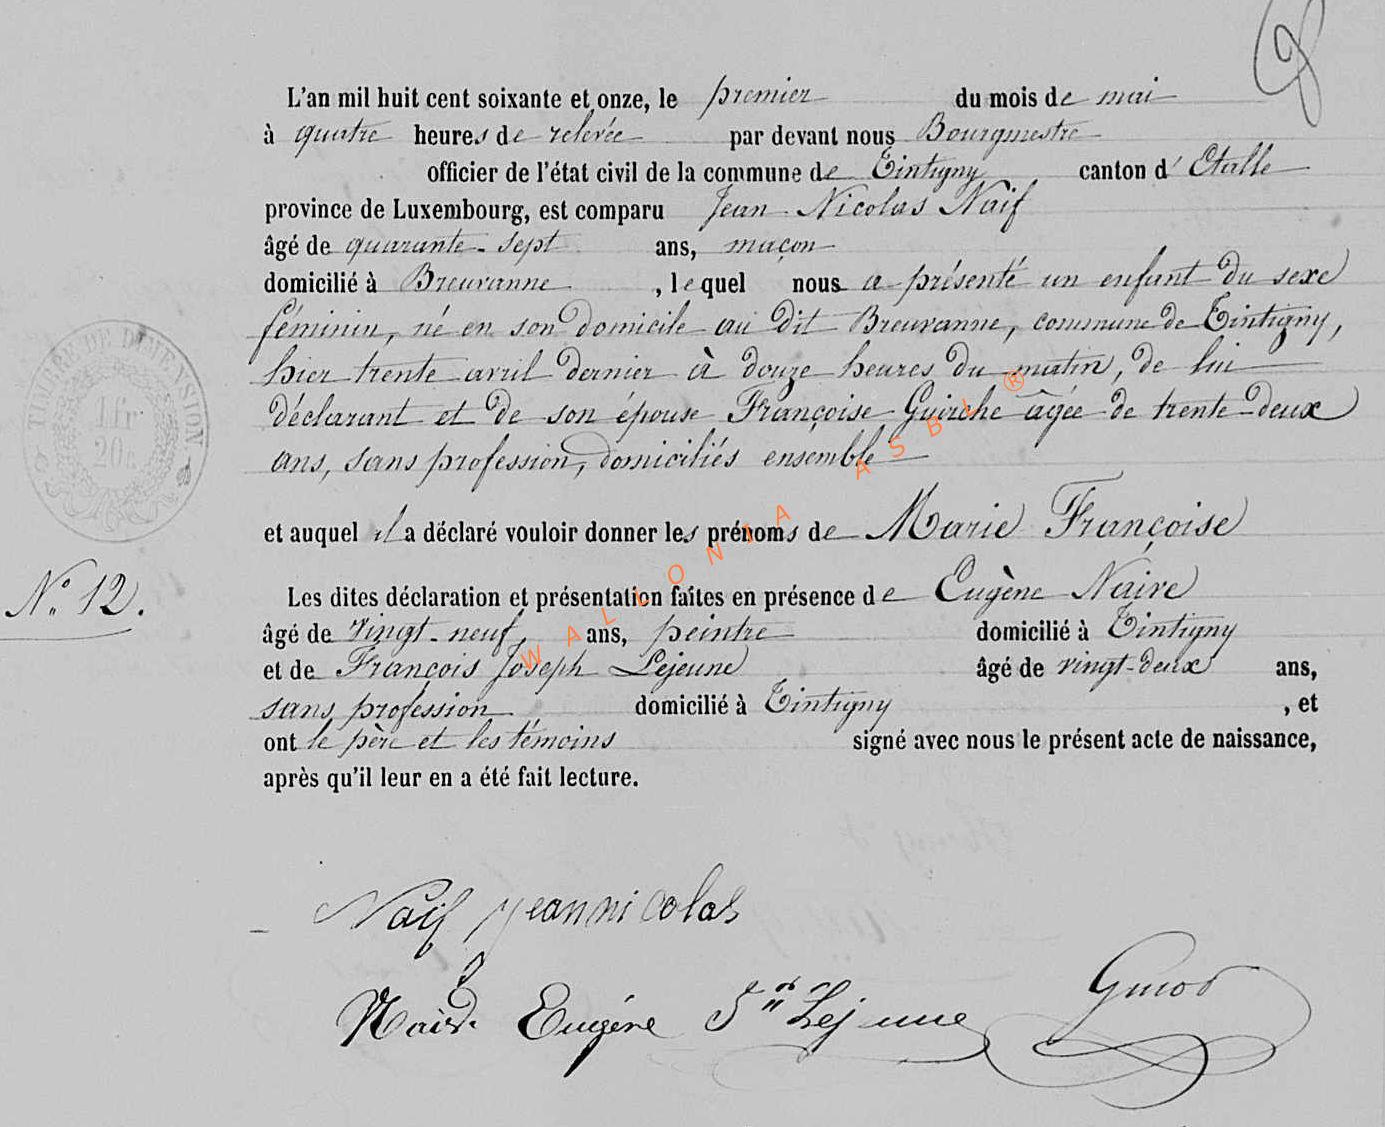 L'an mil huit cent soixante et onze, le premier du mois de mai
à quatre heures de relevée par devant nous Bourgmestre
officier de l'état civil de la commune de Tintigny canton d' Etalle
province de Luxembourg, est comparu Jean Nicolas Naif
âgé de quarante-sept ans, maçon
domicilié à Breuvanne, lequel nous a présenté un enfant du sexe
féminin, né en son domicile au dit Breuvanne, commune de Tintigny,
hier trente avril dernier à douze heures du matin, de lui
déclarant et de son épouse Françoise Guirche âgée de trente-deux
ans, sans profession, domiciliés ensemble
et auquel il a déclaré vouloir donner les prénoms de Marie Françoise
N° 12.
Les dites déclaration et présentation faites en présence de Eugène Naive
âgé de vingt-neuf, ans, peintre domicilié à Tintigny
et de François Joseph Lejeune âgé de vingt-deux ans,
sans profession domicilié à Tintigny, et
ont le père et les témoins signé avec nous le présent acte de naissance,
après qu'il leur en a été fait lecture.
TIMBRE DE DIMENSION
1 fr
20c
WALLONIA ASBL ®
Naif jean nicolas
Eugène Lejeune